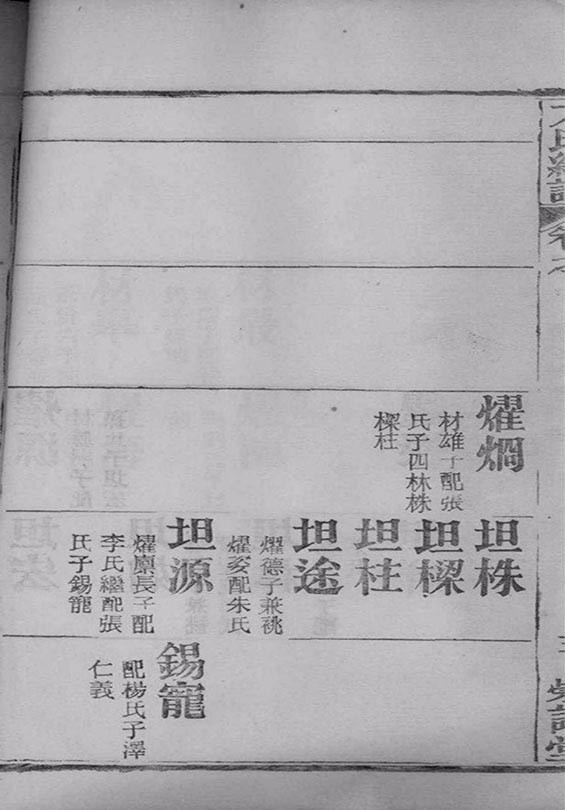 氏
燿烱
材雄子配張
氏子四林株
樑柱
坦株
坦樑
坦柱
坦途
燿德子兼祧
燿菱配朱氏
坦源
燿原長子配
李氏繼配張
氏子錫寵
錫寵
配楊氏子澤
仁義